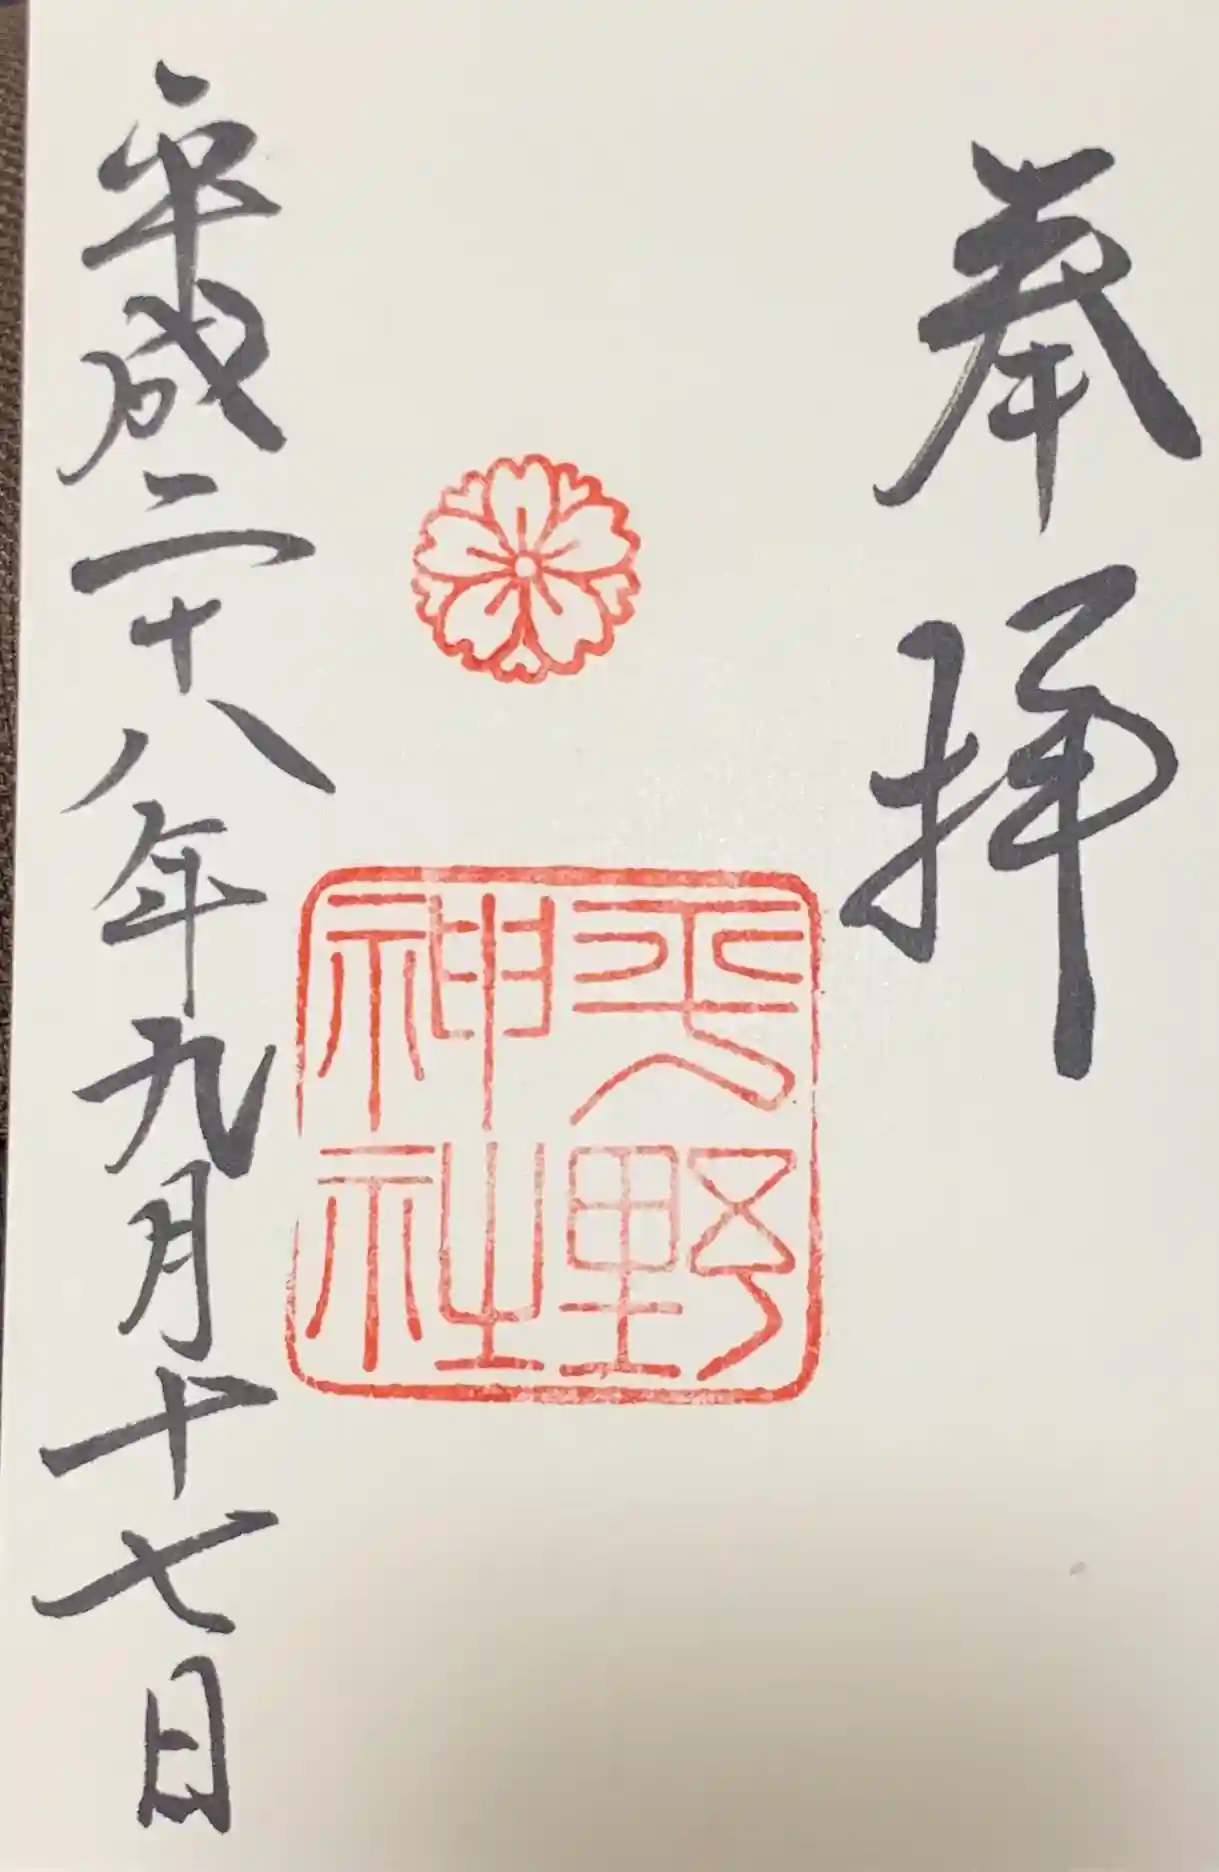 奉拝
平野神社
平成二十八年九月十七日